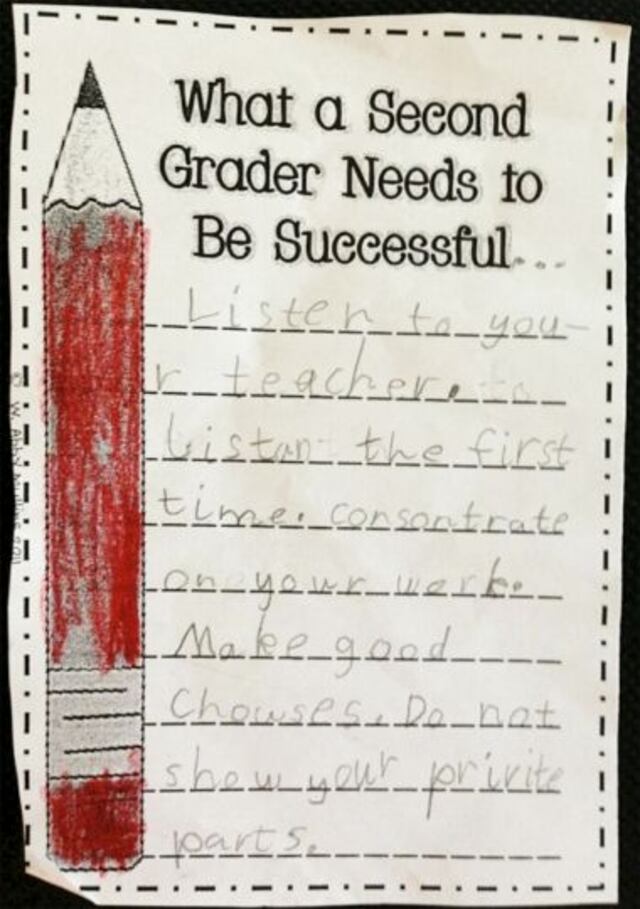 What a Second
Grader Needs to
Be Successful...
Listen to you-
r teacher.
Listan the first
time. consontrate
on your work.
Make good
Chowses. Do not
show your privite
parts.